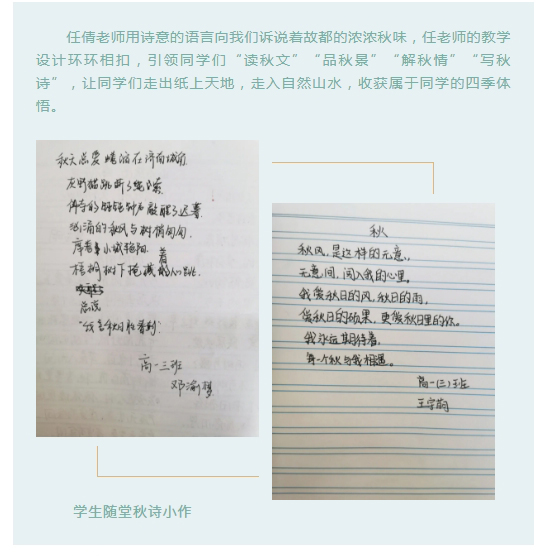 任倩老师用诗意的语言向我们诉说着故都的浓浓秋味，任老师的教学
设计环环相扣，引领同学们“读秋文”“品秋景”“解秋情”“写秋
诗”，让同学们走出纸上天地，走入自然山水，收获属于同学的四季体
悟。
秋天总爱蜷缩在济南城府
灰野猫跳断了绳索
佛寺的铛铛钟声敲醒了迟暮
的秋风与树俏旬旬
席卷小城艳阳
梧桐树下掩藏着心跳
总说
高一三班
邓渝
秋
秋风，是这样的无意，
无意间，闯入我的心里。
我爱秋日的风，秋日的雨，
爱秋日的硕果，更爱秋日里的你。
我永远期待着，
每一个秋与我相遇。
高一(三)班
王宇
学生随堂秋诗小作